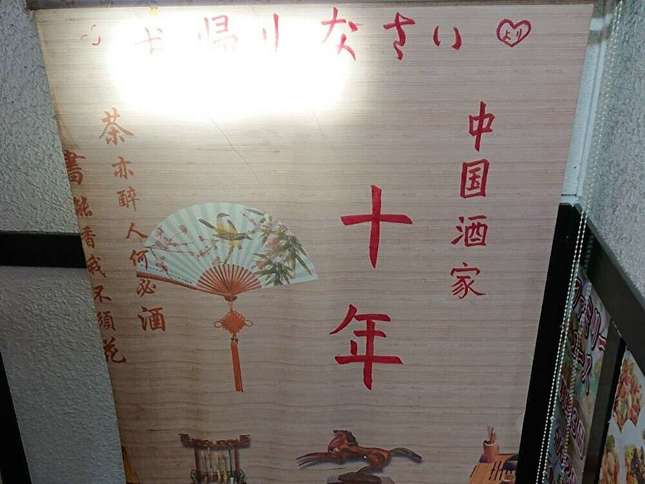 お帰りなさい
より
中国酒家
十年
茶亦醉人何必酒
書能香我不須花